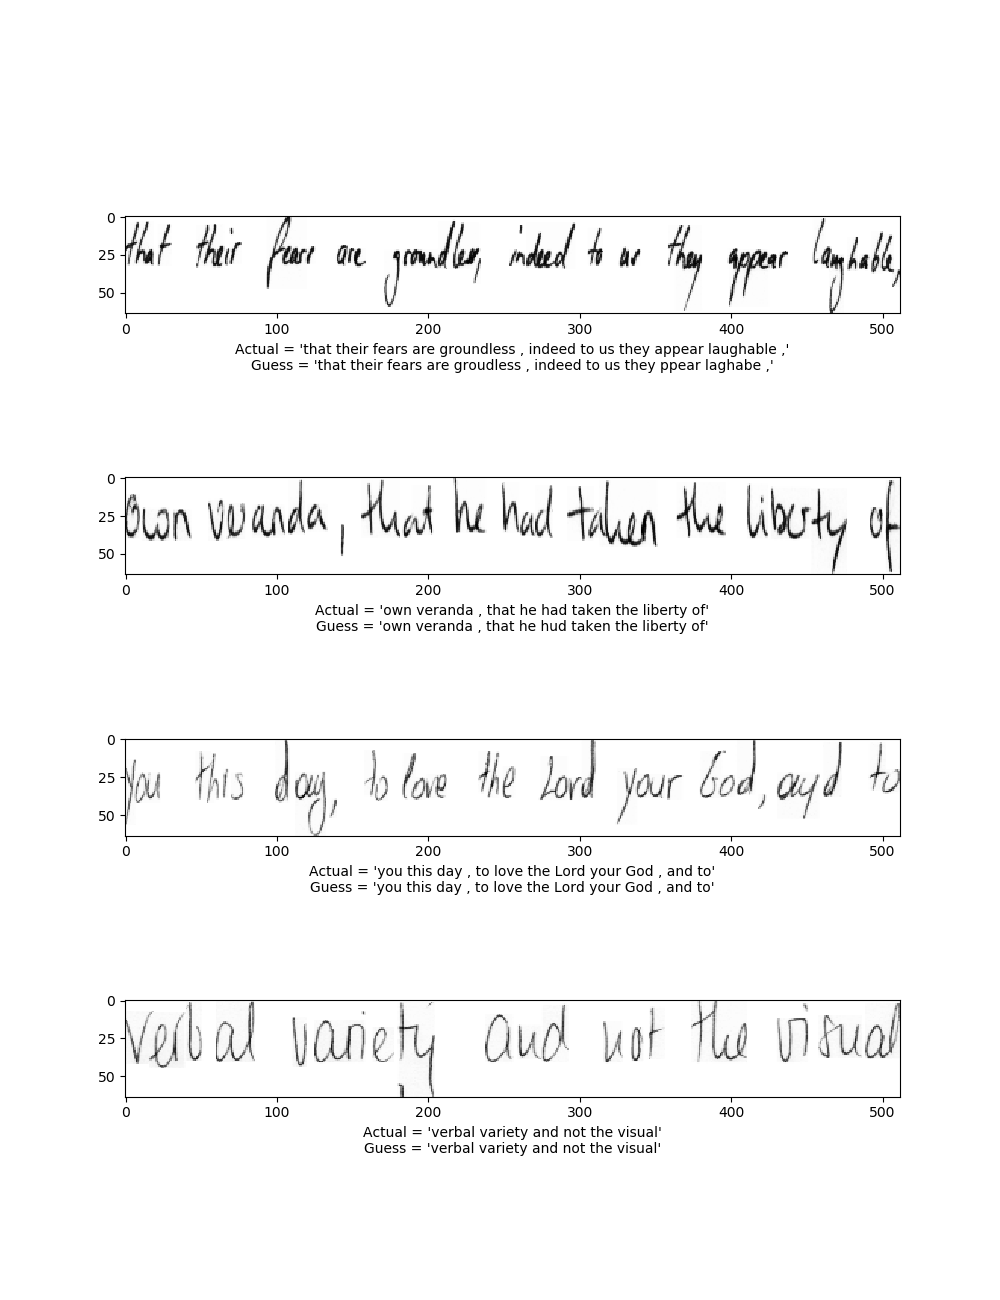 0
25
50
that their fears are groundless, indeed to us they appear laughable,
0 100 200 300 400 500
Actual = 'that their fears are groundless , indeed to us they appear laughable ,'
Guess = 'that their fears are groudless , indeed to us they ppear laghabe ,'
0
25
50
own veranda, that he had taken the liberty of
0 100 200 300 400 500
Actual = 'own veranda , that he had taken the liberty of'
Guess = 'own veranda , that he hud taken the liberty of'
0
25
50
you this day, to love the Lord your God, and to
0 100 200 300 400 500
Actual = 'you this day , to love the Lord your God , and to'
Guess = 'you this day , to love the Lord your God , and to'
0
25
50
verbal variety and not the visual
0 100 200 300 400 500
Actual = 'verbal variety and not the visual'
Guess = 'verbal variety and not the visual'